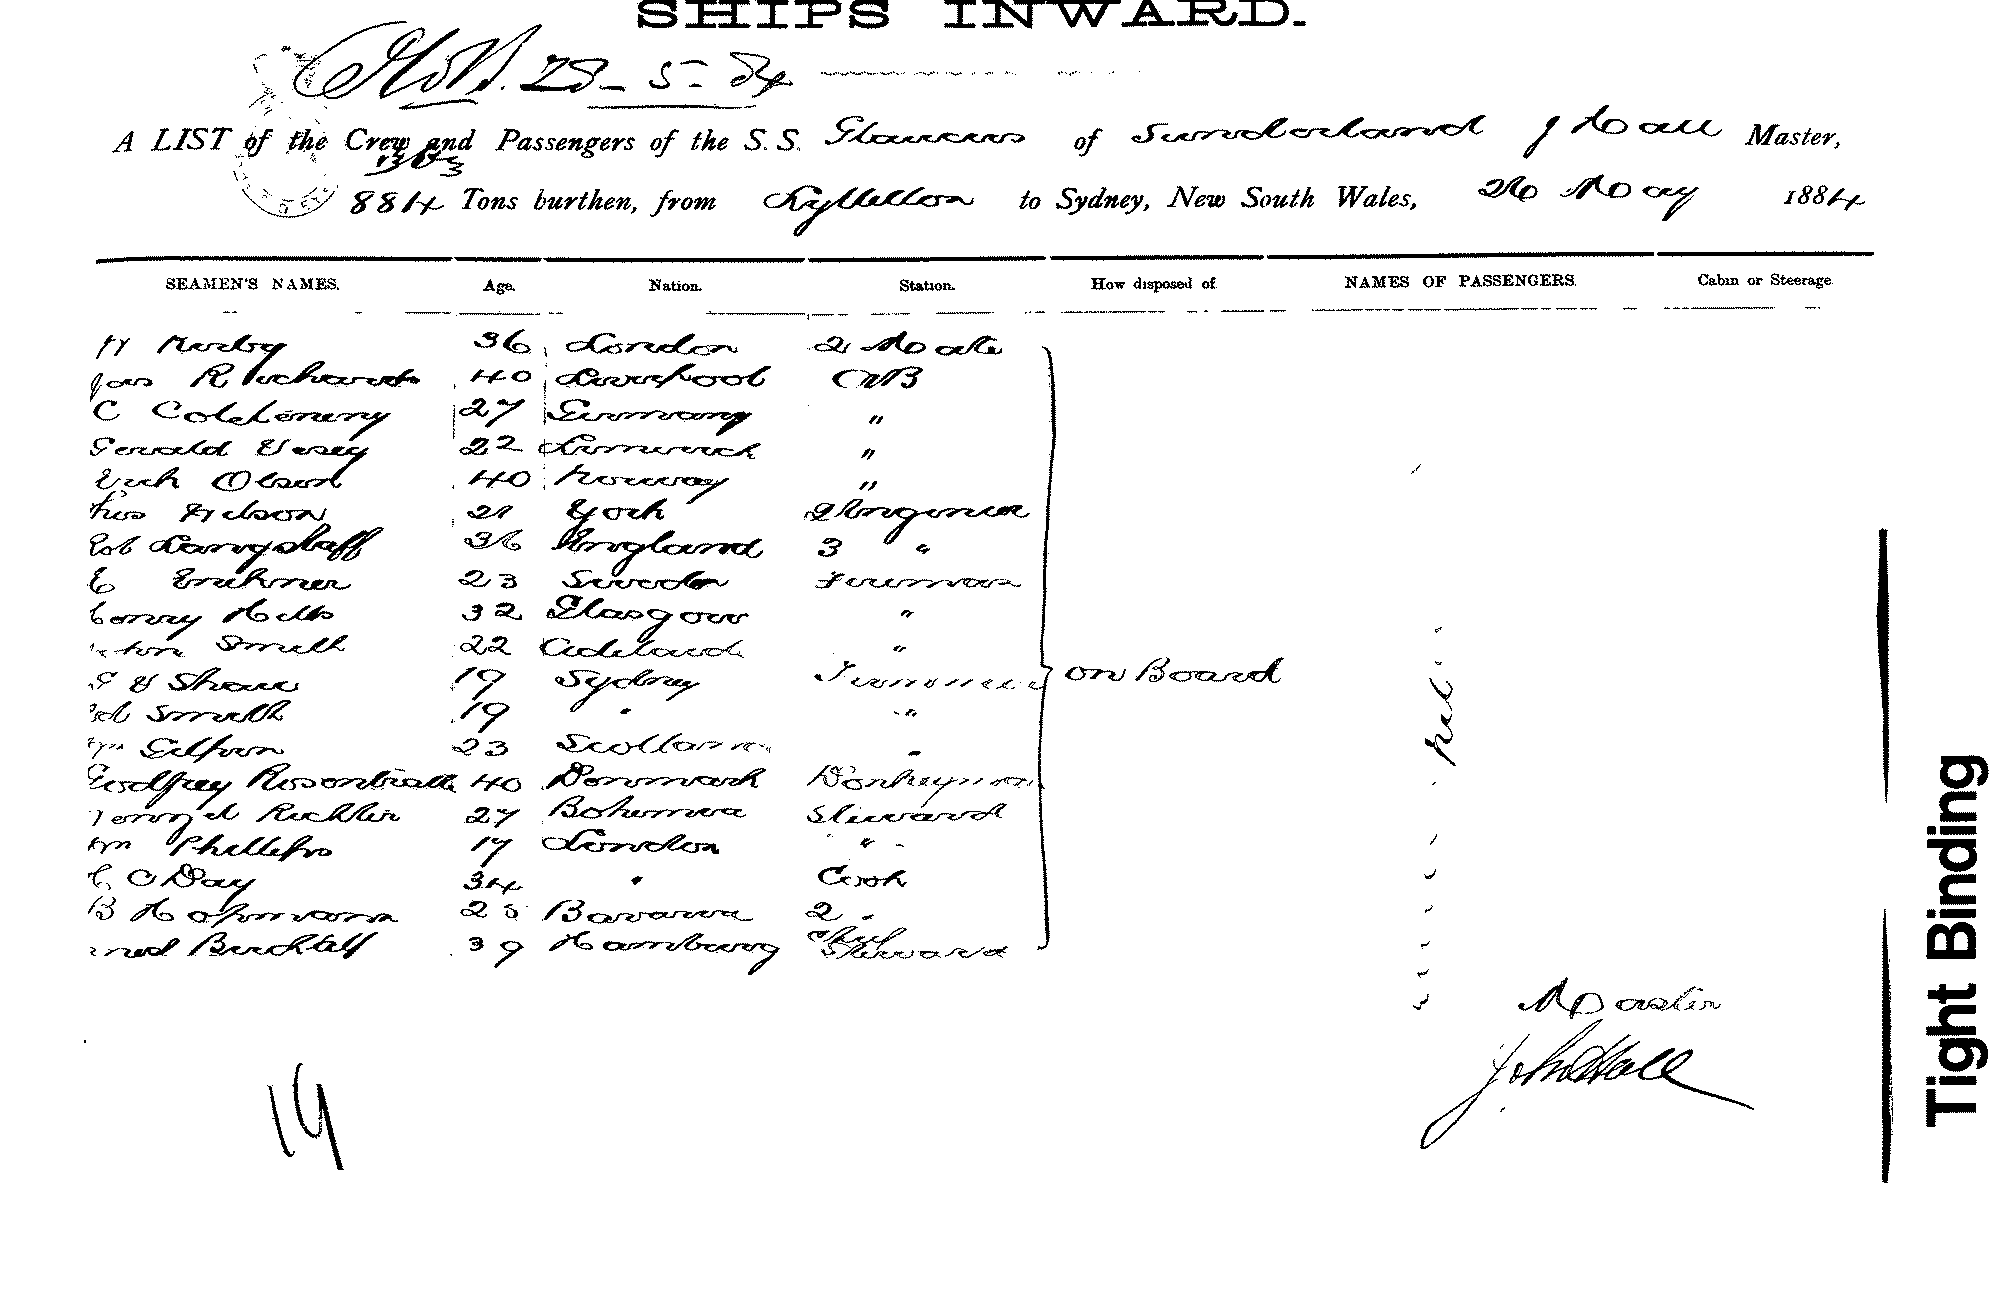 SHIPS INWARD.
28-5-84
A LIST of the Crew and Passengers of the S.S. Glaucus of Sunderland J Hall Master,
884 Tons burthen, from Lyttelton to Sydney, New South Wales, 26 May 1884
SEAMEN'S NAMES. Age. Nation. Station. How disposed of NAMES OF PASSENGERS. Cabin or Steerage
36 London 2 Mate
Jas Richards 40 Liverpool AB
C 27 Germany "
Gerald Vesey 22 Limerick "
Erick Olsen 40 Norway "
Nelson 21 York 2 Engineer
Rob Langstaff 36 England 3 "
23 Sweden Fireman
Henry Hills 32 Glasgow "
Smith 22 Adelaide "
Shaw 19 Sydney Trimmer on Board
Smith 19 " "
Gilpin 23 Scotland "
Godfray 40 Denmark Donkeyman
Richter 27 Bohemia Steward
Wm Phillips 17 London "
C Day 34 " Cook
B Hofmann 25 Bavaria 2 "
39 Hamburg Chief Steward
nil
Master
John Hall
19
Tight Binding